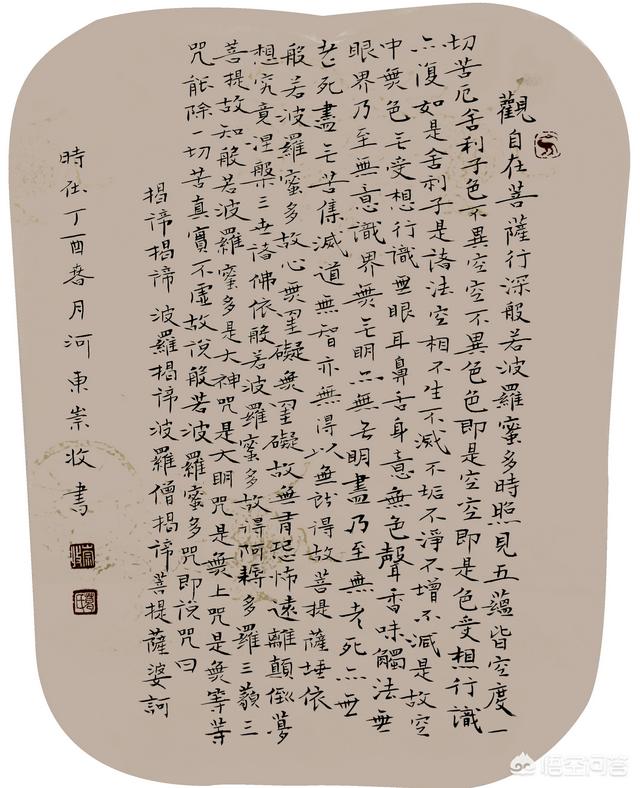 觀自在菩薩行深般若波羅蜜多時照見五蘊皆空度一
切苦厄舍利子色不異空空不異色色即是空空即是色受想行識
亦復如是舍利子是諸法空相不生不滅不垢不淨不增不減是故空
中無色无受想行識無眼耳鼻舌身意無色聲香味觸法無
眼界乃至無意識界無无明亦無无明盡乃至無老死亦無
老死盡无苦集滅道無智亦無得以無所得故菩提薩埵依
般若波羅蜜多故心無罣礙無罣礙故無有恐怖遠離顛倒夢
想究竟涅槃三世諸佛依般若波羅蜜多故得阿耨多羅三藐三
菩提故知般若波羅蜜多是大神咒是大明咒是無上咒是無等等
咒能除一切苦真實不虛故說般若波羅蜜多咒即說咒曰
揭諦揭諦波羅揭諦波羅僧揭諦菩提薩婆訶
時在丁酉春月河東崇收書
悟空问答